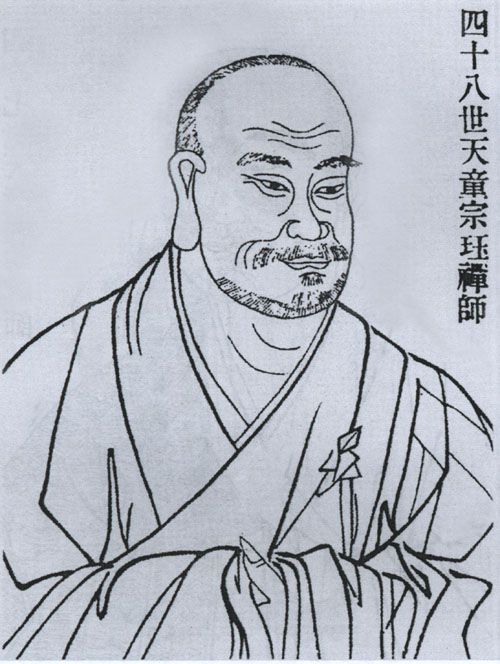 四十八世天童宗珏禪師